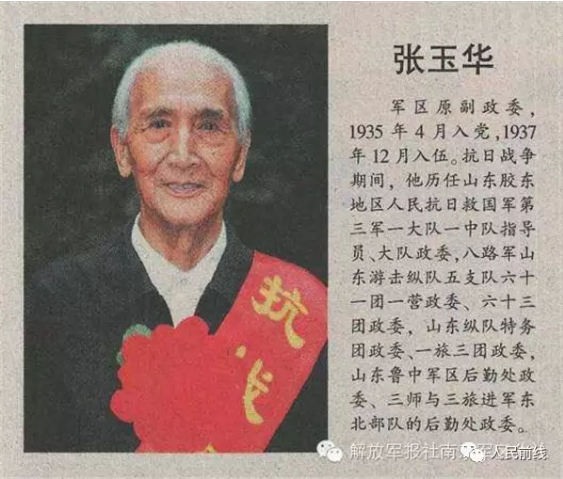 张玉华
军区原副政委，
1935 年 4 月入党，1937
年 12 月入伍。抗日战争
期间，他历任山东胶东
地区人民抗日救国军第
三军一大队一中队指导
员、大队政委，八路军山
东游击纵队五支队六十
一团一营政委、六十三
团政委，山东纵队特务
团政委、一旅三团政委，
山东鲁中军区后勤处政
委、三师与三旅进军东
北部队的后勤处政委。
抗战
解放军报社南 军
人民前线